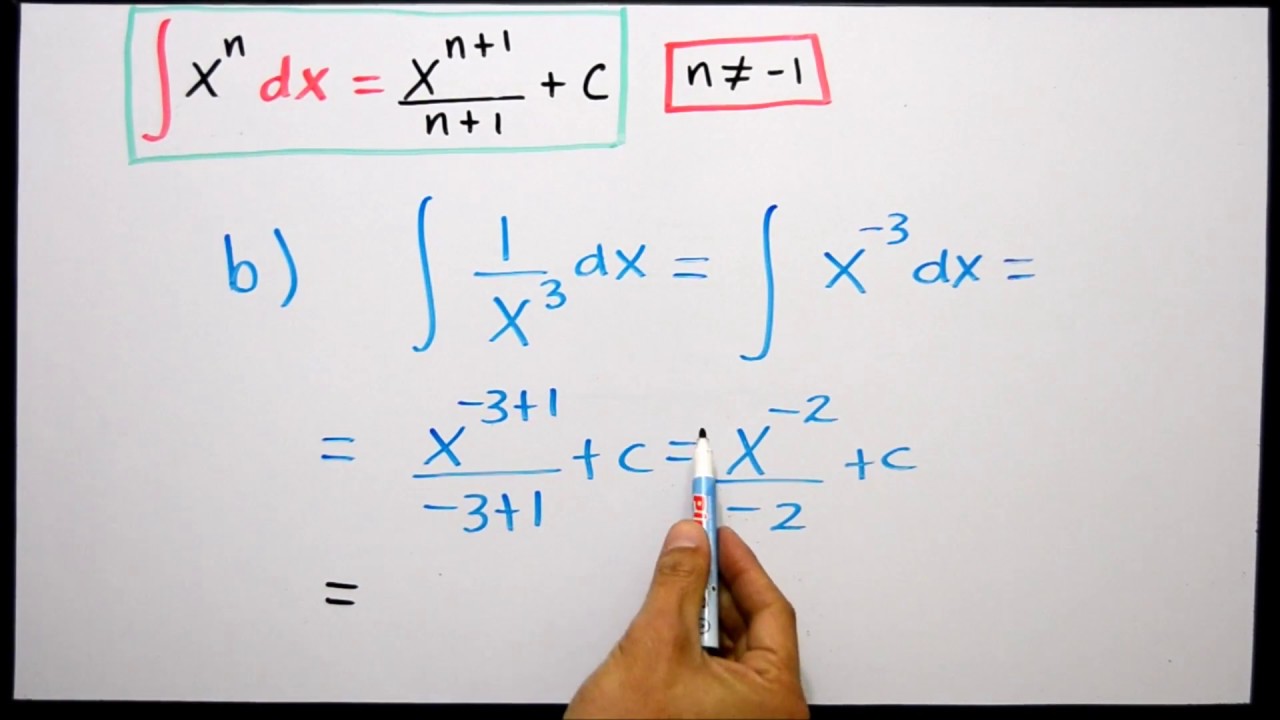 ∫ xⁿ dx = xⁿ⁺¹/n+1 + c n ≠ -1
b) ∫ 1/x³ dx = ∫ x⁻³ dx =
= x⁻³⁺¹/-3+1 + c = x⁻²/-2 + c
=